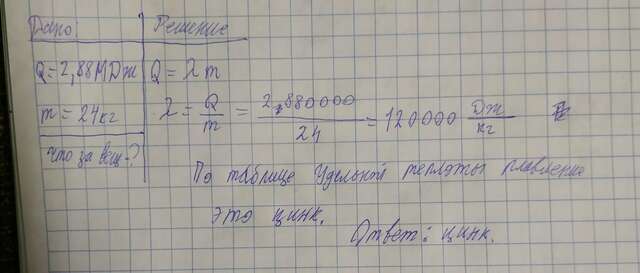 Дано:
Решение
Q = 2,88 МДж
Q = λ m
m = 24 кг
λ = Q/m = 2,880000/24 = 120000 Дж/кг
что за вещ-?
По таблице удельной теплоты плавление
это цинк.
Ответ: цинк.